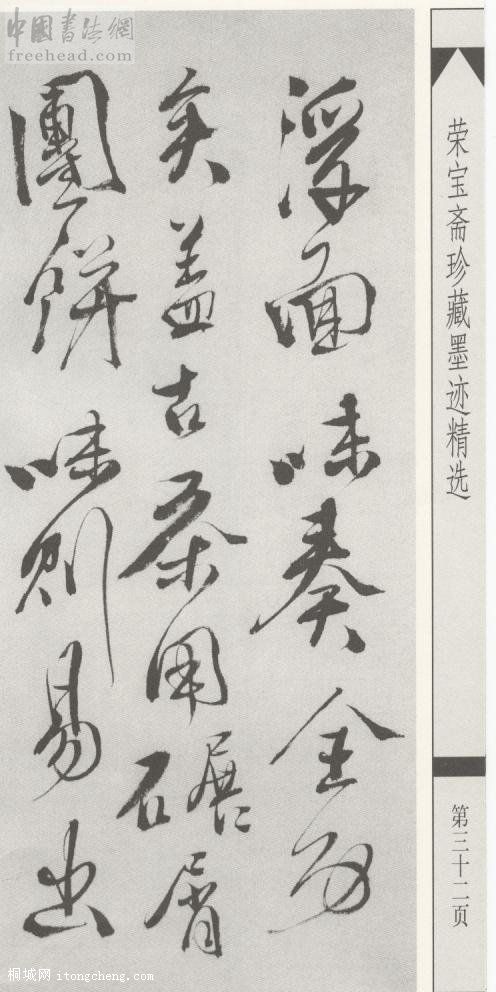 中國書法網
freehead.com
荣宝斋珍藏墨迹精选
第三十二页
浮面味奏全功
矣盖古茶用碾屑
團餅味則易出
桐城网 itongcheng.com